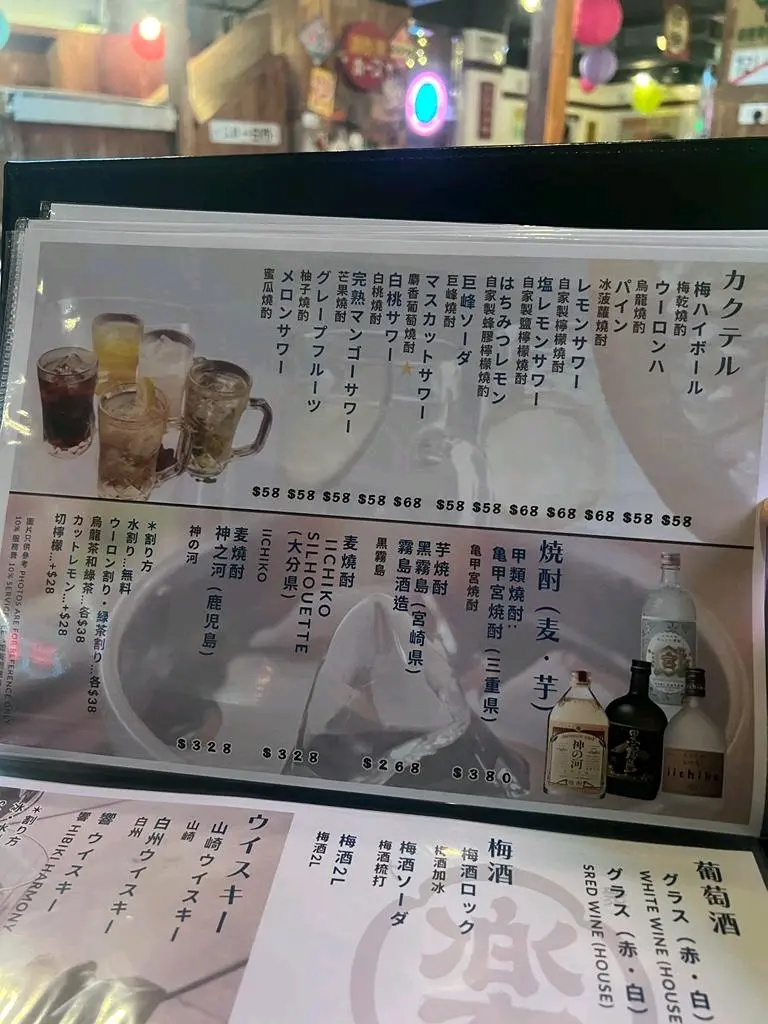 カクテル
梅ハイボール
梅乾燒酌
ウーロンハ
烏龍燒酌
パイン
冰菠蘿燒酌
レモンサワー
自家製檸檬燒酌
塩レモンサワー
自家製鹽檸檬燒酌
はちみつレモン
自家製蜂膠檸檬燒酌
巨峰ソーダ
巨峰燒酌
マスカットサワー
麝香葡萄燒酌
白桃サワー
白桃燒酌
完熟マンゴーサワー
芒果燒酌
グレープフルーツ
柚子燒酌
メロンサワー
蜜瓜燒酌
$58 $58 $58 $58 $68 $58 $58 $68 $68 $68 $58 $58
焼酎（麦・芋）
甲類燒酎:
亀甲宮焼酎（三重県）
亀甲宮燒酎
$380
芋焼酎
黑霧島（宮崎県）
霧島酒造
黒霧島
$268
麦焼酎
IICHIKO
SILHOUETTE
（大分県）
IICHIKO
$328
麦焼酎
神之河（鹿児島）
神の河
$328
＊割り方
水割り…無料
ウーロン割り・緑茶割り…各$38
烏龍茶和綠茶…各$38
カットレモン…+$28
切檸檬…+$28
圖片只供參考 PHOTOS ARE FOR REFERENCE ONLY
10% 服務費 10% SERVICE
神の河
iichiko
葡萄酒
グラス（赤・白）
WHITE WINE (HOUSE)
グラス（赤・白）
SRED WINE (HOUSE)
梅酒
梅酒ロック
梅酒加冰
梅酒ソーダ
梅酒梳打
梅酒2L
梅酒2L
ウイスキー
山崎ウイスキー
山崎
白州ウイスキー
白州
響ウイスキー
響 HIBIKI HARMONY
＊割り方